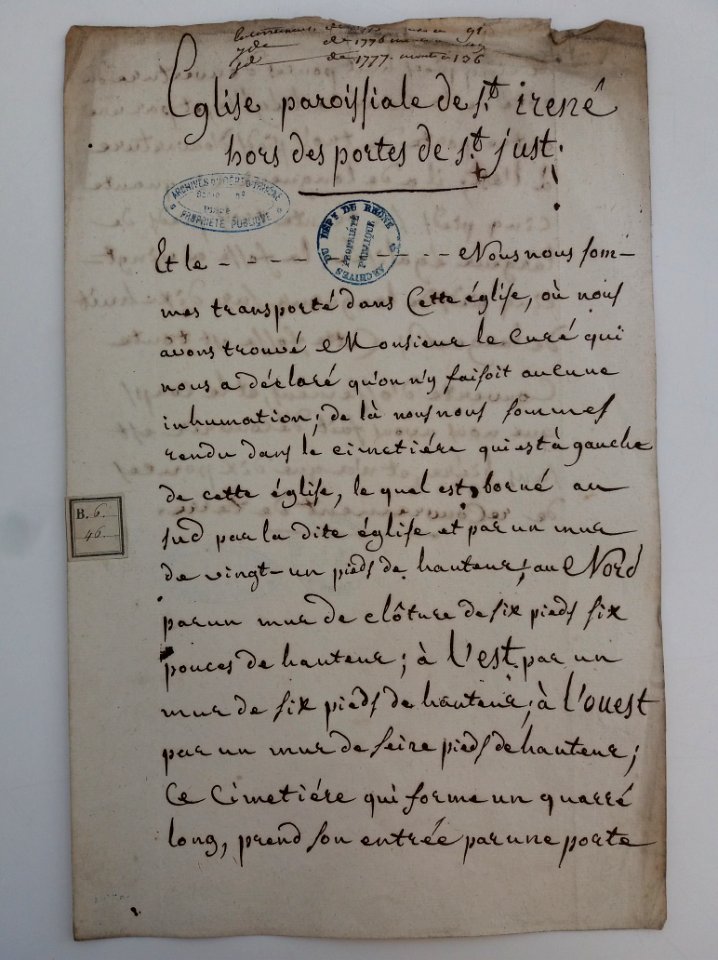 de 1775 91
jde de 1776
jd de 1777. monte a 136
Eglise paroissiale de S.t irené
hors des portes de S.t just.
ARCHIVES DÉPARTEMENTALES RHÔNE PROPRIÉTÉ PUBLIQUE
ARCHIVES DU DÉP.T DU RHÔNE PROPRIÉTÉ PUBLIQUE
Et le - - - - - - - - - - - Nous nous som-
mes transporté dans Cette église, où nous
avons trouvé Monsieur le Curé qui
nous a déclaré qu'on n'y faisoit aucune
inhumation; de là nous nous sommes
rendu dans le cimetiére qui est à gauche
de cette église, le quel est borné au
sud par la dite église et par un mur
B. 6.
46.
de vingt-un pieds de hauteur; au Nord
par un mur de clôture de six pieds six
pouces de hauteur; à l'est par un
mur de six pieds de hauteur; à l'ouest
par un mur de seire pieds de hauteur;
Ce Cimetiére qui forme un quarré
long, prend son entrée par une porte